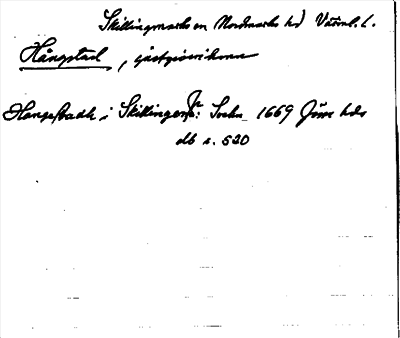 Skillingmarks sn Nordmarks hd Värml. l.
Hångstad, gästgiverihem
Hangestadh i Skillingem: Sochn 1669 Jösse hds
db s. 520